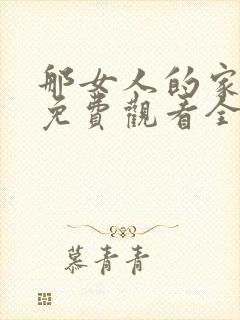 那女人的家
免費觀看全
慕青青